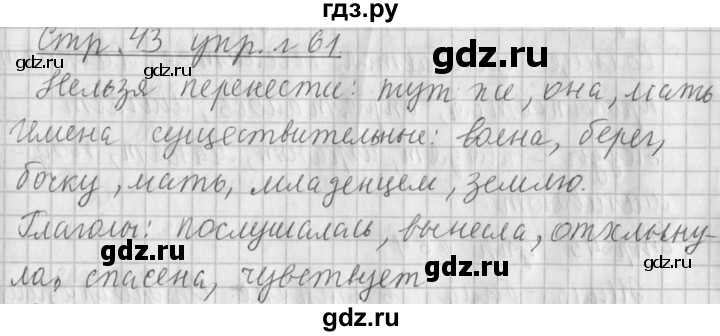 гдз.ру
Стр. 43 упр. г 61
Нельзя перенести: тут же, она, мать
Имена существительные: волна, берег,
бочку, мать, младенцем, землю.
Глаголы: послушалась, вынесла, отхлыну-
ла, спасена, чувствует
gdz.ru gdz.ru gdz.ru